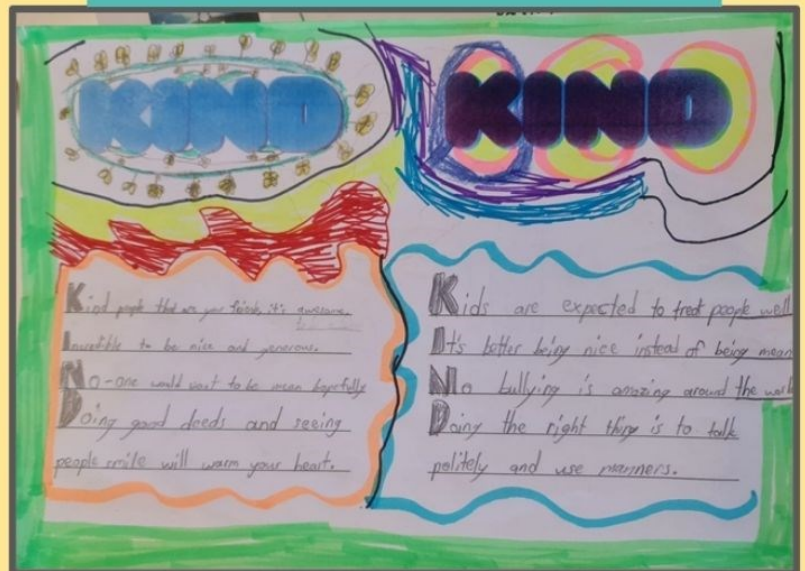 KIND
Kind people that are your friends, it's awesome.
Incredible to be nice and generous.
No-one would want to be mean hopefully
Doing good deeds and seeing
people smile will warm your heart.
KIND
Kids are expected to treat people well
It's better being nice instead of being mean
No bullying is amazing around the
Doing the right thing is to talk
politely and use manners.